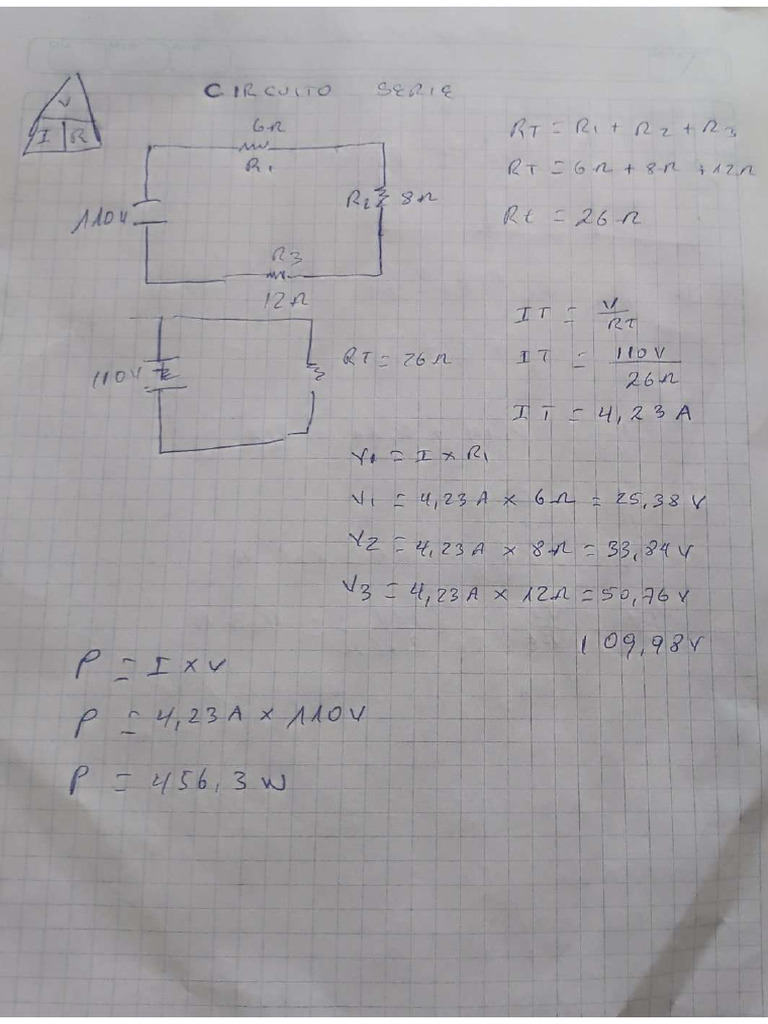 CIRCUITO SERIE
V
I R
6Ω
R1
110V
R2 8Ω
R3
12Ω
RT = R1 + R2 + R3
RT = 6Ω + 8Ω + 12Ω
Rt = 26Ω
110V
RT = 26Ω
IT = V/RT
IT = 110V/26Ω
IT = 4,23A
V1 = I x R1
V1 = 4,23A x 6Ω = 25,38V
V2 = 4,23A x 8Ω = 33,84V
V3 = 4,23A x 12Ω = 50,76V
109,98V
P = I x V
P = 4,23A x 110V
P = 456,3W